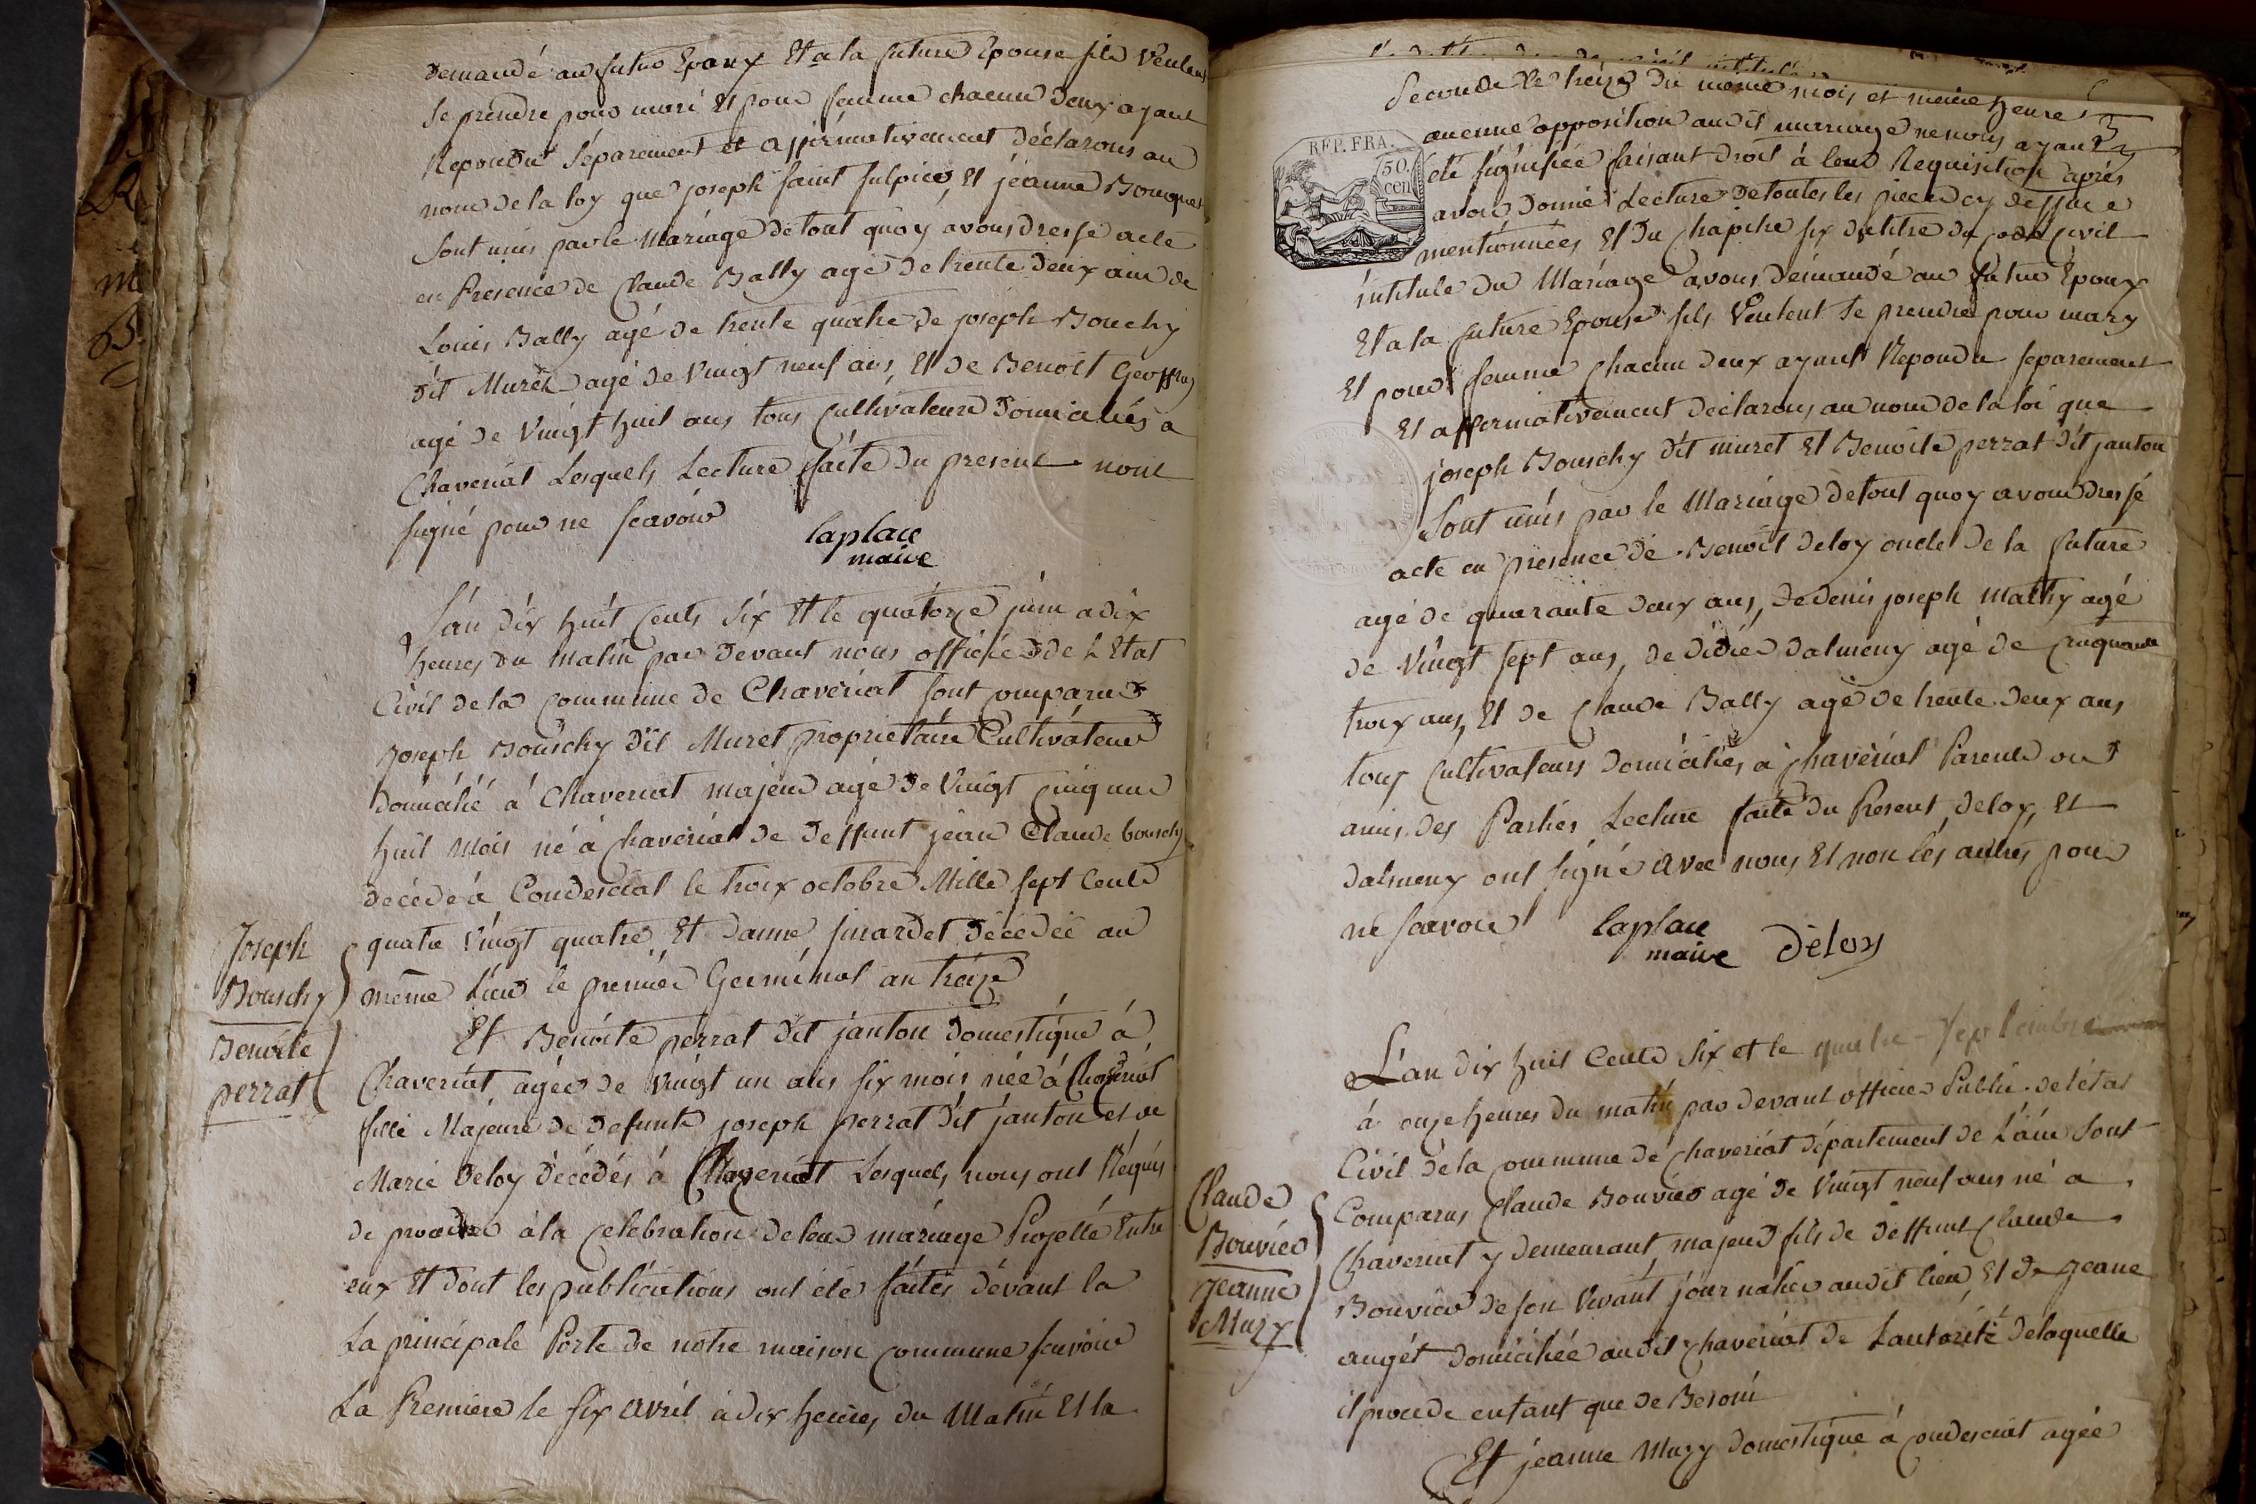 demandé au futur Epoux Et a la future Epouse sils Veulent
se prendre pour mari Et pour femme chacun deux ayant
Repondu séparement et affirmativement déclarons au
nom de la loy que joseph saint sulpice Et jeanne Bouquet
sont unis par le Mariage de tout quoy avons dressé acte
en Presence de Claude Bally agé de trente deux ans de
Louis Bally agé de trente quatre de joseph Bouchy
dit Muret agé de Vingt neuf ans, Et de Benoit Geoffray
agé de Vingt huit ans tous Cultivateurs Domiciliés a
Chaveriat Lesquels Lecture faite du present nont
signé pour ne scavoir
laplace
maire
L'an dix huit Cents Six Et le quatorze juin a dix
heures du matin par devant nous officié de L'Etat
Civil de la Commune de Chaveriat sont comparus
Joseph Bouschy dit Muret proprietaire Cultivateur
domicilié à Chaveriat majeur agé de Vingt cinq ans
huit mois né à Chaveriat de deffunt jean Claude bouschy
décédé à Condesciat le troix octobre Mille sept Cents
quatre Vingt quatre Et danne sirardet Décédée au
même Lieu le premier Germinal an treize
Joseph
Bouschy
Benoite
perrat
Et Benoite perrat dit janton domestique à
Chaveriat, agée de Vingt un ans six mois née à Chaveriat
fille Majeure de defunts joseph perrat dit janton et de
Marie Deloy Décédés à Chaveriat Lesquels nous ont Réquis
de proceder à la Celebration de leur mariage Projetté Entre
eux Et dont les publications ont été faites dévant la
La principale Porte de notre maison Commune scavoir
La Premiere le six Avril à dix heures du Matin Et la
REP. FRA.
50.
cen
Seconde le treize du même mois et meme heure
aucenne opposition audit mariage ne nous ayant
été signifiée faisant droit à leur Requisition après
avoir Donné Lecture de toutes les pieces cy dessus
mentionnées Et du Chapitre six du titre du code Civil
intitule du Mariage avons demandé au futur Epoux
Et a la future Epouse sils Veulent se prendre pour mary
Et pour femme Chacun deux ayant Repondu separement
Et affirmativement declarons au nom de la loi que
joseph Bouschy dit muret Et Benoite perrat dit janton
Sont unis par le Mariage de tout quoy avons dressé
acte en presence de Benoit deloy oncle de la future
agé de quarante deux ans, de denis joseph mathy agé
de Vingt sept ans, de didier dalmeny agé de cinquante
troix ans, Et de Claude Bally agé de trente deux ans
tous Cultivateurs domiciliés à Chaveriat Parents ou
amis des Parties Lecture faite du Present, deloy, Et
dalmeny ont signé avec nous Et non les autres pour
ne scavoir
laplace
maire
Deloy
L'an dix huit Cents Six et le quatre Septembre
à onze heures du matin par devant officier Public de l'état
Civil de la commune de Chaveriat département de L'ain sont
Comparus Claude Bouvier agé de Vingt neuf ans né a
Chaveriat y demeurant, majeur fils de deffunt Claude
Bouvier de son Vivant journalier audit lieu, Et de jeane
augét domiciliée audit Chaveriat de Lautorité delaquelle
il procede entant que de Besoin
Claude
Bouvier
Jeanne
Muzy
Et jeanne Muzy domestique à Condesciat agée